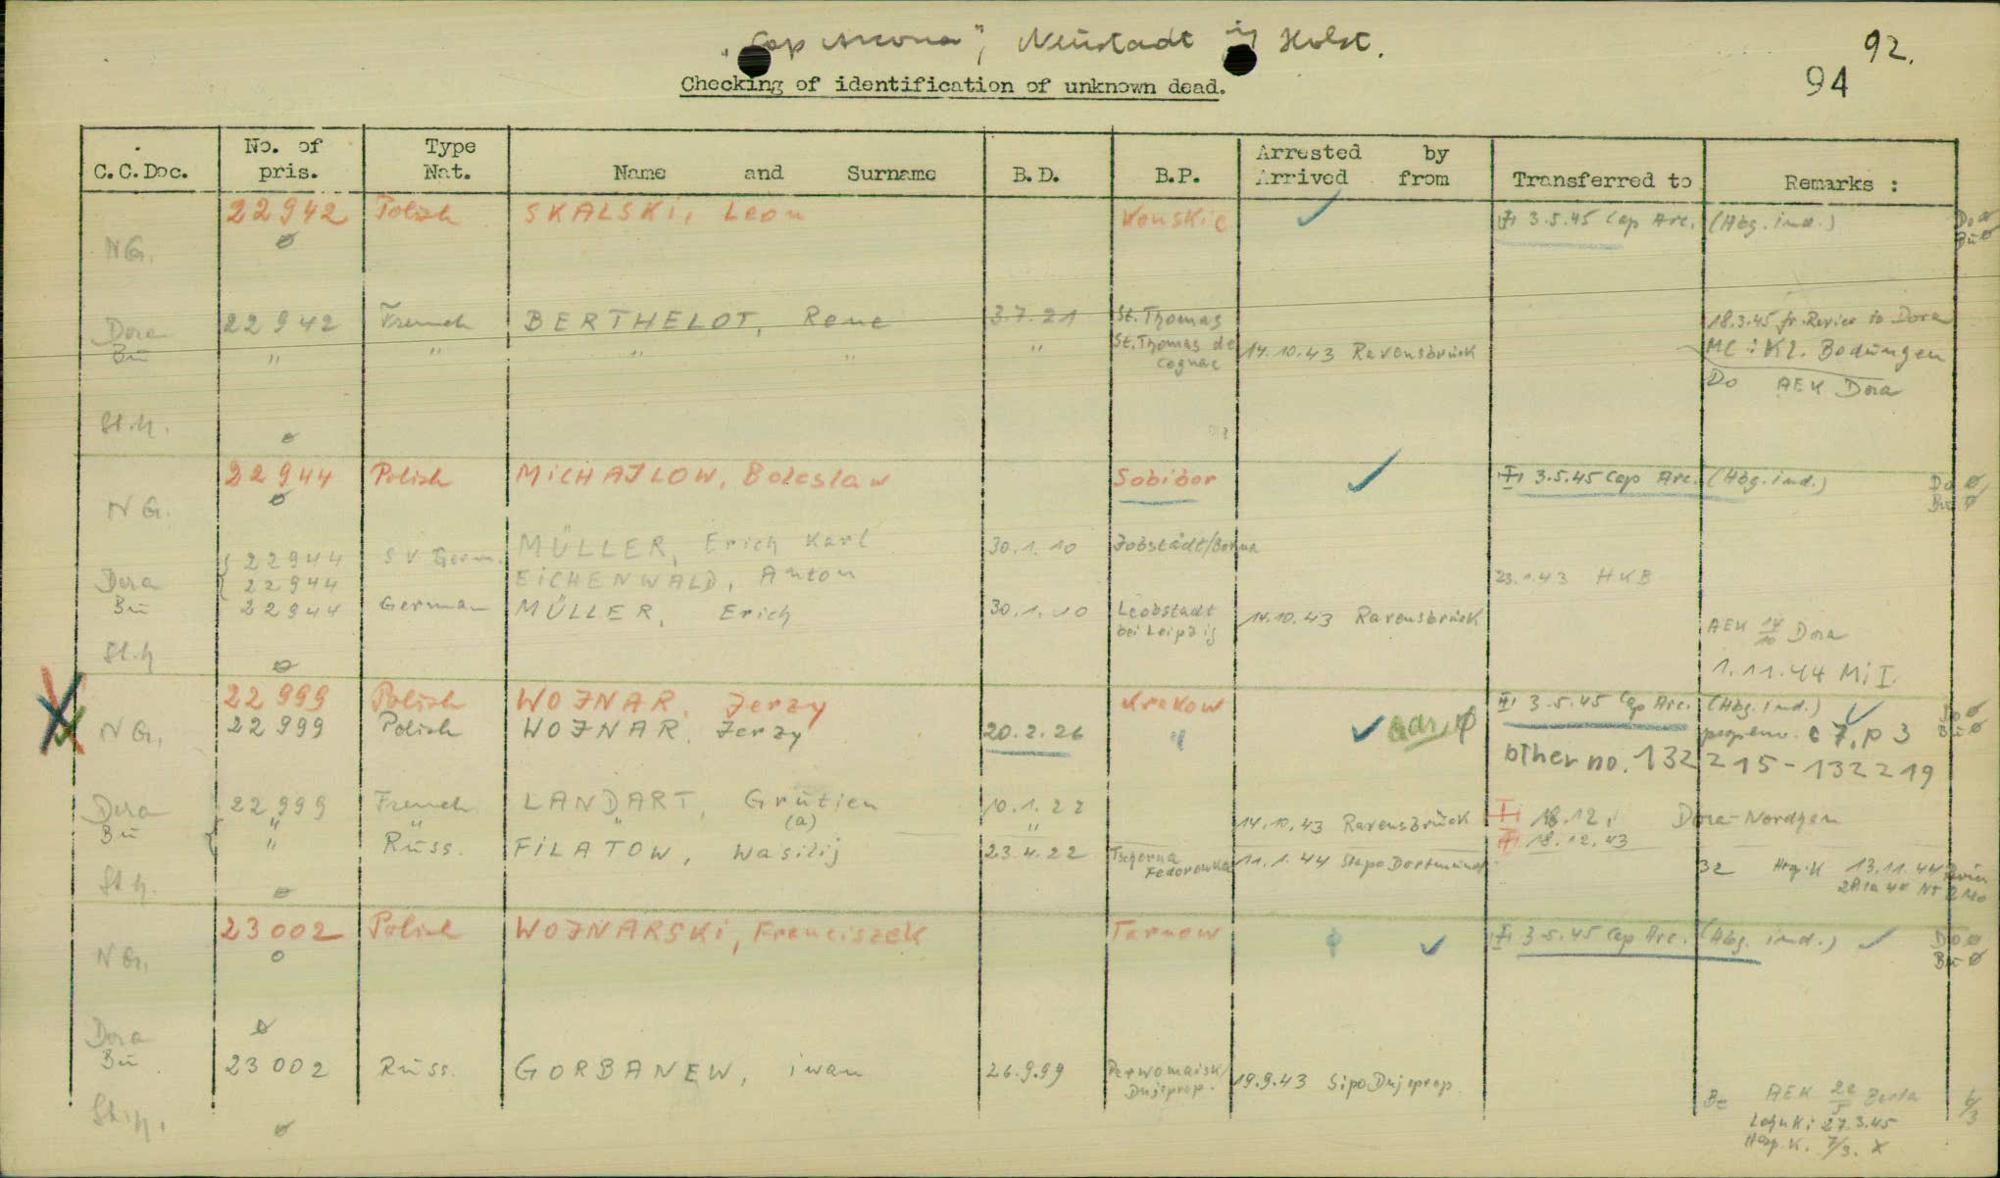 „Cap Arcona", Neustadt in Holst.
92.
94
Checking of identification of unknown dead.
C.C.Doc. No. of pris. Type Nat. Name and Surname B.D. B.P. Arrested by Arrived from Transferred to Remarks :
22942 Polish SKALSKi, Leon Konskie 3.5.45 Cap Arc. (Abg. ind.) Do ø
NG. ø Bu ø
Dora 22942 French BERTHELOT, Rene 3.7.21 St. Thomas 18.3.45 fr. Revier to Dora
Bu " " " " " St. Thomas de Cognac 14.10.43 Ravensbrück MC : Kl. Bodungen
Do AEK Dora
St.h. ø
22944 Polish MiCHAJLOW, Boleslaw Sobibor 3.5.45 Cap Arc. (Abg. ind.) Do ø
NG. ø Bu ø
22944 SV Germ. MÜLLER, Erich Karl 30.1.10
Dora 22944 EiCHENWALD, Anton 23.1.43 HKB
Bu 22944 German MÜLLER, Erich 30.1.10 Leobstadt bei Leipzig 14.10.43 Ravensbrück
AEK 14/10 Dora
St.h ø 1.11.44 Mi I.
22999 Polish WOJNAR, Jerzy Krakow 3.5.45 Cap Arc. (Abg. ind.) Do ø
NG. 22999 Polish WOJNAR, Jerzy 20.2.26 " 7, p 3 Bu ø
other no. 132215-132219
Dora 22999 French LANDART, Grütien 10.1.22 18.12. Dora-Nordhsn
Bu " " " (a) " 14.10.43 Ravensbrück 18.12.43
" Russ. FiLATOW, Wasilij 23.4.22 Tschorna Fedorowka 11.1.44 Stapo Dortmund
32 13.11.44
St.h. ø
23002 Polish WOJNARSKi, Franciszek Tarnow 3.5.45 Cap Arc. (Abg. ind.) Do ø
NG. ø Bu ø
Dora ø
Bu 23002 Russ. GORBANEW, iwan 26.9.99 Perwomaisk/Dnjeprop. 19.9.43 Sipo Dnjeprop.
Be AEK 22/5 6/3
St.h. ø 27.3.45
7/3. X